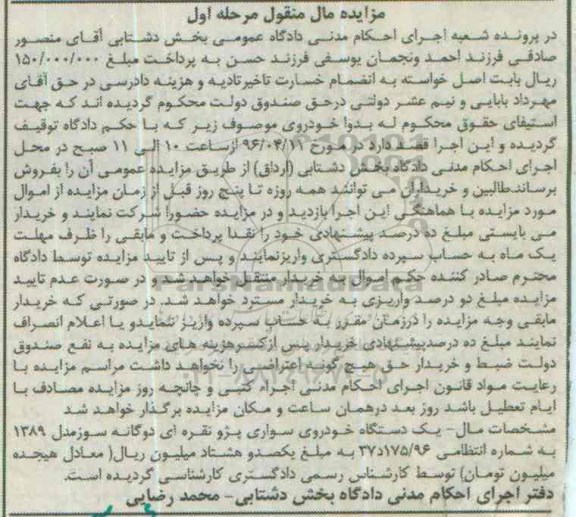 مزایده مال منقول مرحله اول
در پرونده شعبه اجرای احکام مدنی دادگاه عمومی بخش دشتابی آقای منصور
صادقی فرزند احمد ونجمان یوسفی فرزند حسن به پرداخت مبلغ ۱۵۰/۰۰۰/۰۰۰
ریال بابت اصل خواسته به انضمام خسارت تاخیرتادیه و هزینه دادرسی در حق آقای
مهرداد بابایی و نیم عشر دولتی درحق صندوق دولت محکوم گردیده اند که جهت
استیفای حقوق محکوم له بدوا خودروی موصوف زیر که با حکم دادگاه توقیف
گردیده و این اجرا قصد دارد در مورخ ۹۶/۰۴/۱۱ ازساعت ۱۰ الی ۱۱ صبح در محل
اجرای احکام مدنی دادگاه بخش دشتابی (ارداق) از طریق مزایده عمومی آن را بفروش
برساند.طالبین و خریداران می توانند همه روزه تا پنج روز قبل از زمان مزایده از اموال
مورد مزایده با هماهنگی این اجرا بازدید و در مزایده حضورا شرکت نمایند و خریدار
می بایستی مبلغ ده درصد پیشنهادی خود را نقدا پرداخت و مابقی را ظرف مهلت
یک ماه به حساب سپرده دادگستری واریزنمایند و پس از تایید مزایده توسط دادگاه
محترم صادر کننده حکم اموال به خریدار منتقل خواهد شد و در صورت عدم تایید
مزایده مبلغ دو درصد واریزی به خریدار مسترد خواهد شد. در صورتی که خریدار
مابقی وجه مزایده را درزمان مقرر به حساب سپرده واریز ننمایدو یا اعلام انصراف
نمایند مبلغ ده درصدپیشنهادی خریدار پس ازکسرهزینه های مزایده به نفع صندوق
دولت ضبط و خریدار حق هیچ گونه اعتراضی را نخواهد داشت مراسم مزایده با
رعایت مواد قانون اجرای احکام مدنی اجرام کتبی و چانچه روز مزایده مصادف با
ایام تعطیل باشد روز بعد درهمان ساعت و مکان مزایده برگذار خواهد شد
مشخصات مال- یک دستگاه خودروی سواری پژو نقره ای دوگانه سوزمدل ۱۳۸۹
به شماره انتظامی ۳۷د۱۷۵/۹۶ به مبلغ یکصدو هشتاد میلیون ریال( معادل هیجده
میلیون تومان) توسط کارشناس رسمی دادگستری کارشناسی گردیده است.
دفتر اجرای احکام مدنی دادگاه بخش دشتابی- محمد رضایی